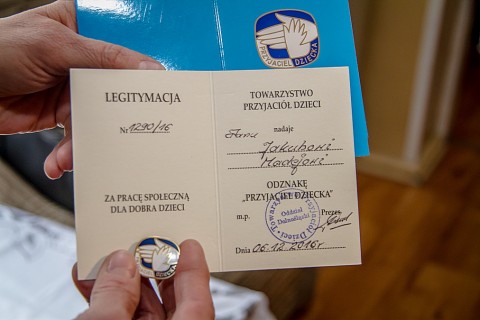 PRZYJACIEL DZIECKA
LEGITYMACJA
Nr 1290/16
ZA PRACĘ SPOŁECZNĄ
DLA DOBRA DZIECI
TOWARZYSTWO
PRZYJACIÓŁ DZIECI
Panu nadaje
Jakubowi
Madejowi
ODZNAKĘ
„PRZYJACIEL DZIECKA"
m.p. Prezes
Towarzystwo Przyjaciół Dzieci
Oddział
Dolnośląski
Dnia 06.12.2016r